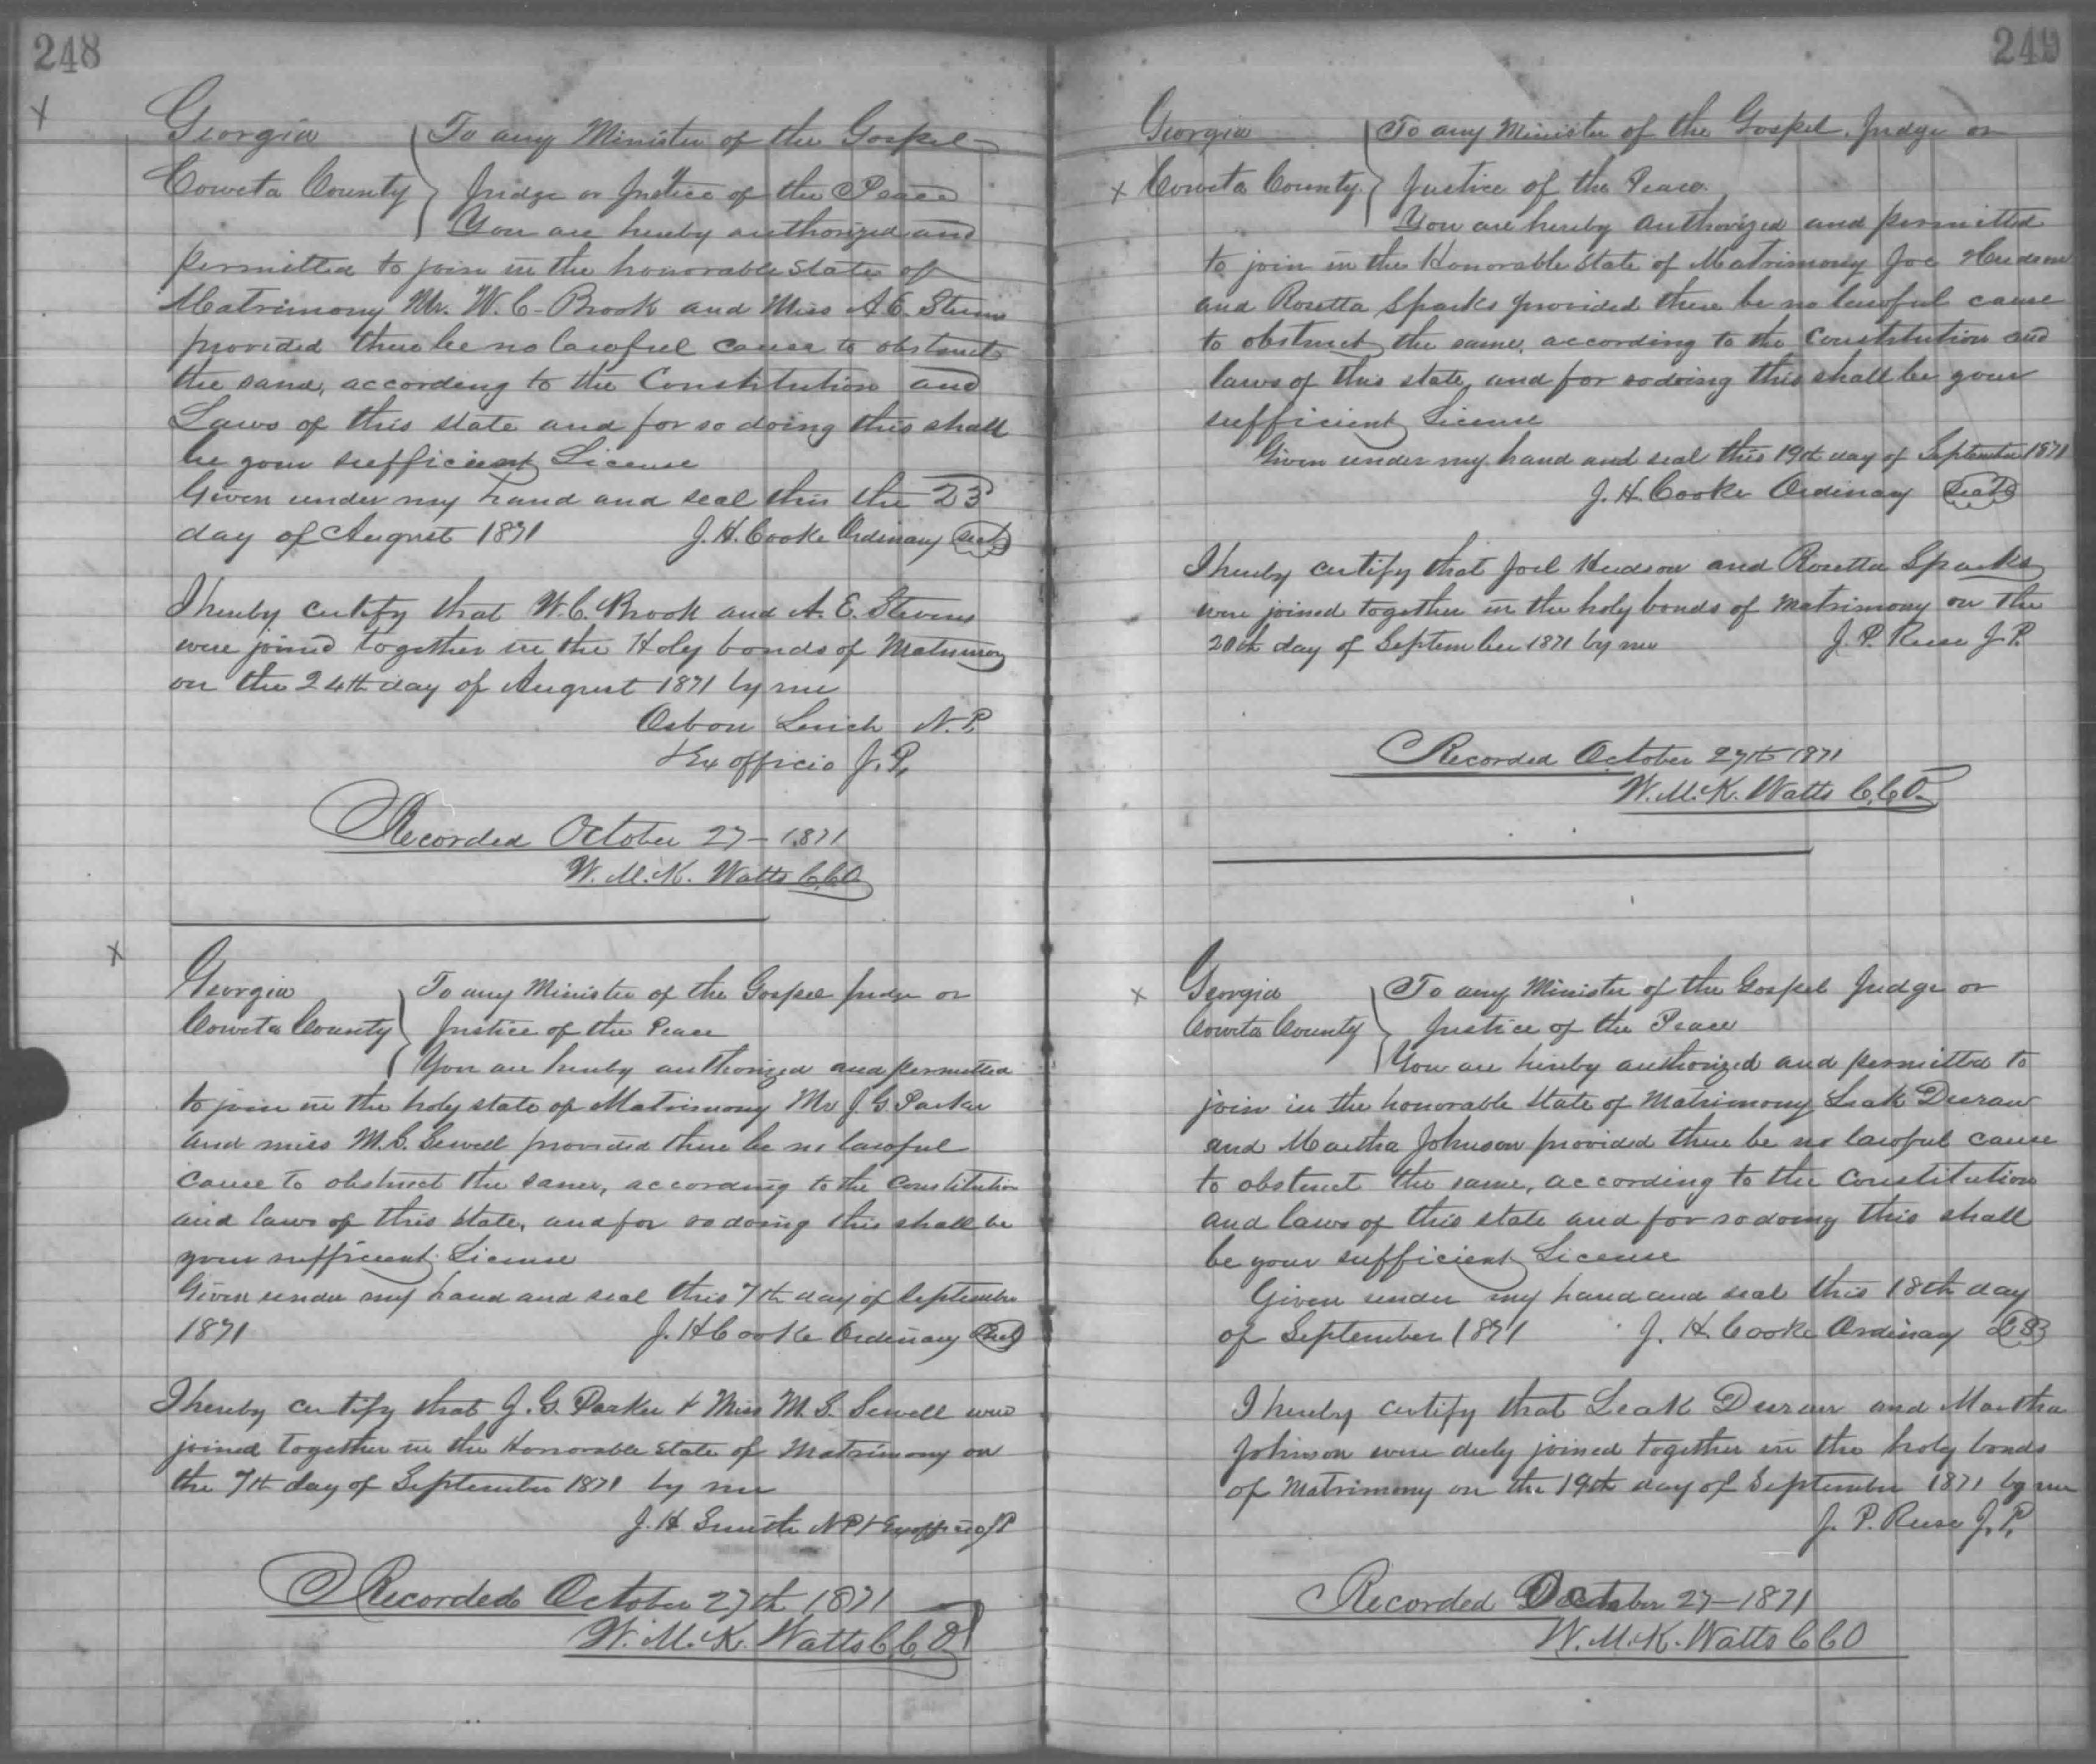 248
Georgia To any Minister of the Gospel
Coweta County Judge or Justice of the Peace
You are hereby authorized and
permitted to join in the honorable state of
Matrimony Mr. W. C. Brook and Miss A. E. Stevens
provided there be no lawful cause to obstruct
the sand, according to the Constitution and
Laws of this state and for so doing this shall
be your sufficient License
Given under my hand and seal this the 23
day of August 1871 J. H. Cooke Ordinary Seal
I hereby certify that W. C. Brook and A. E. Stevens
were joined together in the Holy bonds of Matrimony
on the 24th day of August 1871 by me
Osbon N. P.
+ Ex officio J. P.
Recorded October 27 - 1871
W. M. K. Watts C.C.O.
Georgia To any Minister of the Gospel Judge or
Coweta County Justice of the Peace
You are hereby authorized and permitted
to join in the holy state of Matrimony Mr J G Parker
and miss M. S. Sewell provided there be no lawful
cause to obstruct the same, according to the Constitution
and laws of this State, and for so doing this shall be
your sufficient License
Given under my hand and seal this 7th day of September
1871 J. H Cooke Ordinary Seal
I hereby certify that J. G. Parker + Miss M. S. Sewell were
joined together in the Honorable state of Matrimony on
the 7th day of September 1871 by me
J. H Smith N P + Exofficio J P
Recorded October 27th 1871
W. M. K. Watts C.C.O.
249
Georgia To any Minister of the Gospel, Judge or
Coweta County Justice of the Peace.
You are hereby authorized and permitted
to join in the Honorable State of Matrimony Joe Hudson
and Rosetta Sparks provided there be no lawful cause
to obstruct the same, according to the Constitution and
laws of this state, and for so doing this shall be your
sufficient License
Given under my hand and seal this 19th day of September 1871
J. H. Cooke Ordinary Seal
I hereby certify that Joel Hudson and Rosetta Sparks
were joined together in the holy bonds of matrimony on the
20th day of September 1871 by me J. P. Reese J. P.
Recorded October 27th 1871
W. M. K. Watts C.C.O.
Georgia To any Minister of the Gospel Judge or
Coweta County Justice of the Peace
You are hereby authorized and permitted to
join in the honorable State of Matrimony Leak Duran
and Martha Johnson provided there be no lawful cause
to obstruct the same, according to the Constitution
and laws of this state and for so doing this shall
be your sufficient License
Given under my hand and seal this 18th day
of September 1871 J. H. Cooke Ordinary LS
I hereby certify that Leak Duran and Martha
Johnson were duly joined together in the holy bonds
of Matrimony on the 19th day of September 1871 by me
J. P. Reese J. P.
Recorded October 27 - 1871
W. M. K. Watts C C O